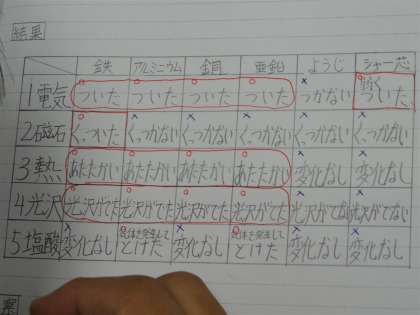 結果
鉄 アルミニウム 銅 亜鉛 ようじ シャー芯
1電気 ついた ついた ついた ついた つかない ついた
2磁石 くっついた くっつかない くっつかない くっつかない くっつかない くっつかない
3熱 あたたかい あたたかい あたたかい あたたかい 変化なし 変化なし
4光沢 光沢がでた 光沢がでた 光沢がでた 光沢がでた 光沢がでない 光沢がでない
5塩酸 変化なし 気体を発生して とけた 変化なし 気体を発生して とけた 変化なし 変化なし